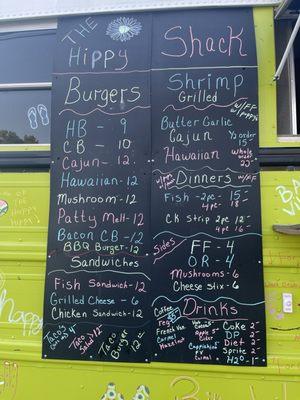 THE
Hippy Shack
Burgers
HB - 9
CB - 10
Cajun - 12
Hawaiian - 12
Mushroom - 12
Patty Melt - 12
Bacon CB - 12
BBQ Burger - 12
Sandwiches
Fish Sandwich - 12
Grilled Cheese - 6
Chicken Sandwich - 12
Taco's
Taco Salad - 12
Taco Burger 12
Shrimp
Grilled
w/FF
Butter Garlic
Cajun
Hawaiian
1/2 order
15-
w/FF
Dinners
Fish - 2pc - 15-
4pc - 18-
CK Strip 2pc 12-
4pc 16-
Sides
FF - 4
OR - 4
Mushrooms - 6
Cheese Stix - 6
Drinks
Coffee
Reg
French Van
Carmel
Hazelnut
Hot Cocoa
Apple Cider
Cappuccino
Coke 2-
DP 2-
Diet 2-
Sprite 2-
H2O 1-
w/Hippy!
Happy